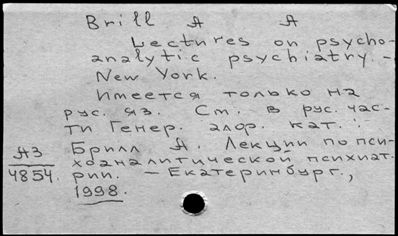 Brill A A
Lectures on psycho-
analytic psychiatry. -
New York.
Имеется только на
рус. яз. См. в рус. час-
ти Генер. алф. кат.:
АЗ Брилл А. Лекции по пси-
4854. хоаналитической психиат-
рии. — Екатеринбург.,
1998.